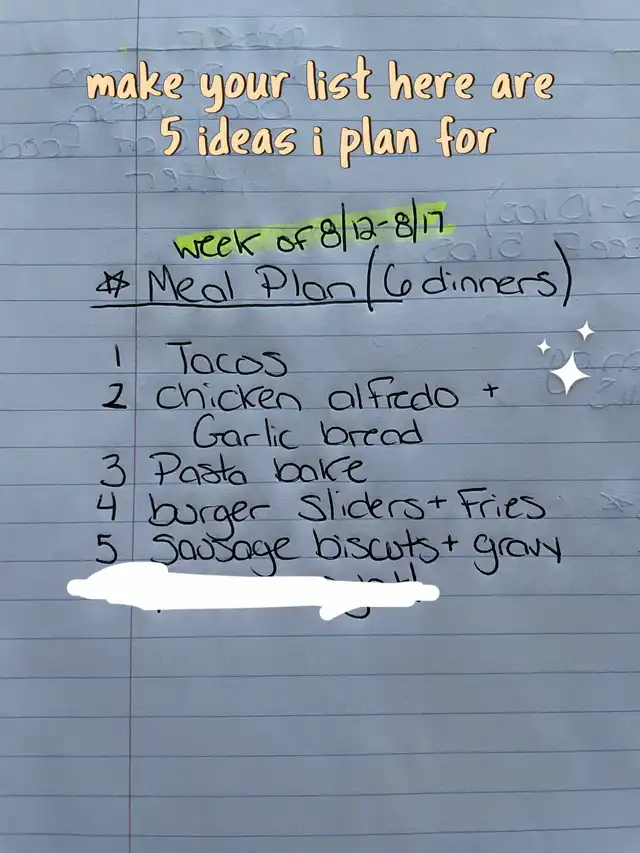 make your list here are
5 ideas i plan for
week of 8/12-8/17
☆ Meal Plan (6 dinners)
1 Tacos
2 chicken alfredo +
Garlic bread
3 Pasta bake
4 burger sliders + Fries
5 sausage biscuts + gravy